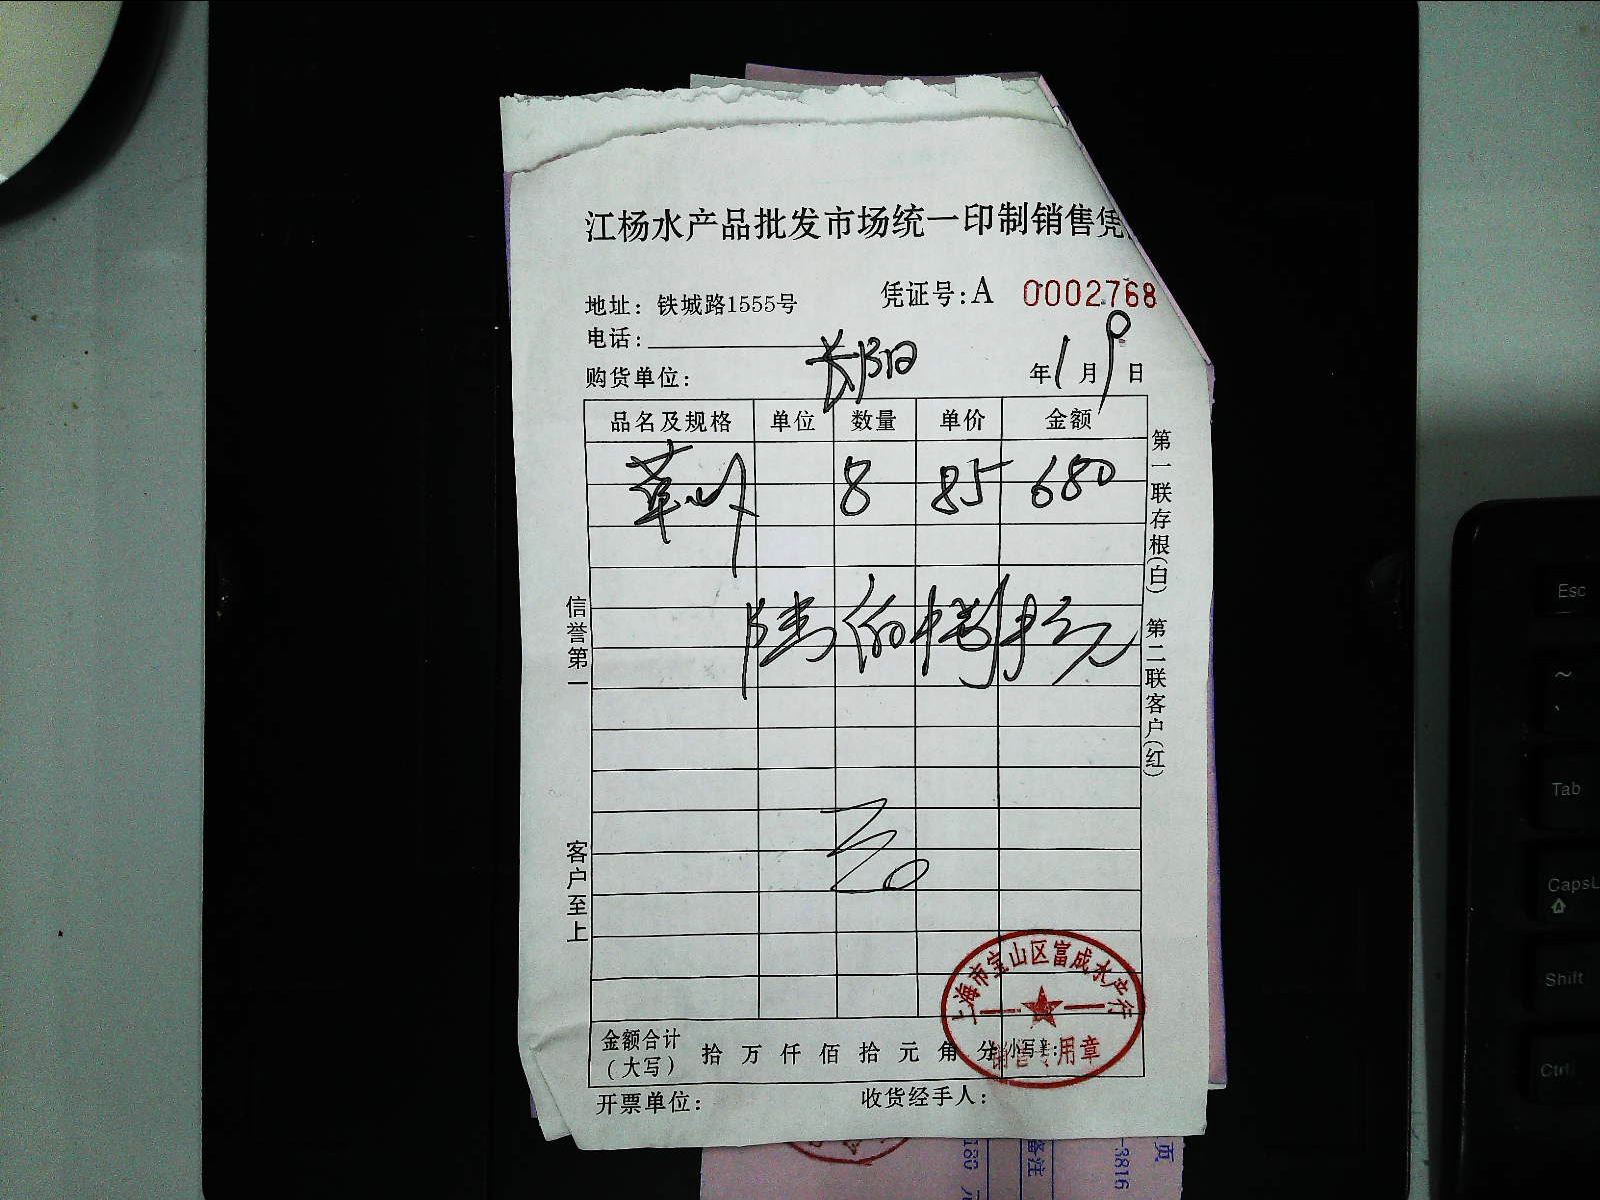 江杨水产品批发市场统一印制销售凭
地址：铁城路1555号
凭证号：A 0002768
电话：
购货单位： 长阳
年1月9日
品名及规格 单位 数量 单价 金额
草 8 85 680
陆佰捌拾元
信誉第一
客户至上
第一联存根(白) 第二联客户(红)
上海市宝山区富成水产行
销售专用章
金额合计（大写） 拾 万 仟 佰 拾 元 角 分 小写¥:
开票单位：
收货经手人：
页
-3816
备注
180
Esc
~
Tab
CapsL
Shift
Ctrl